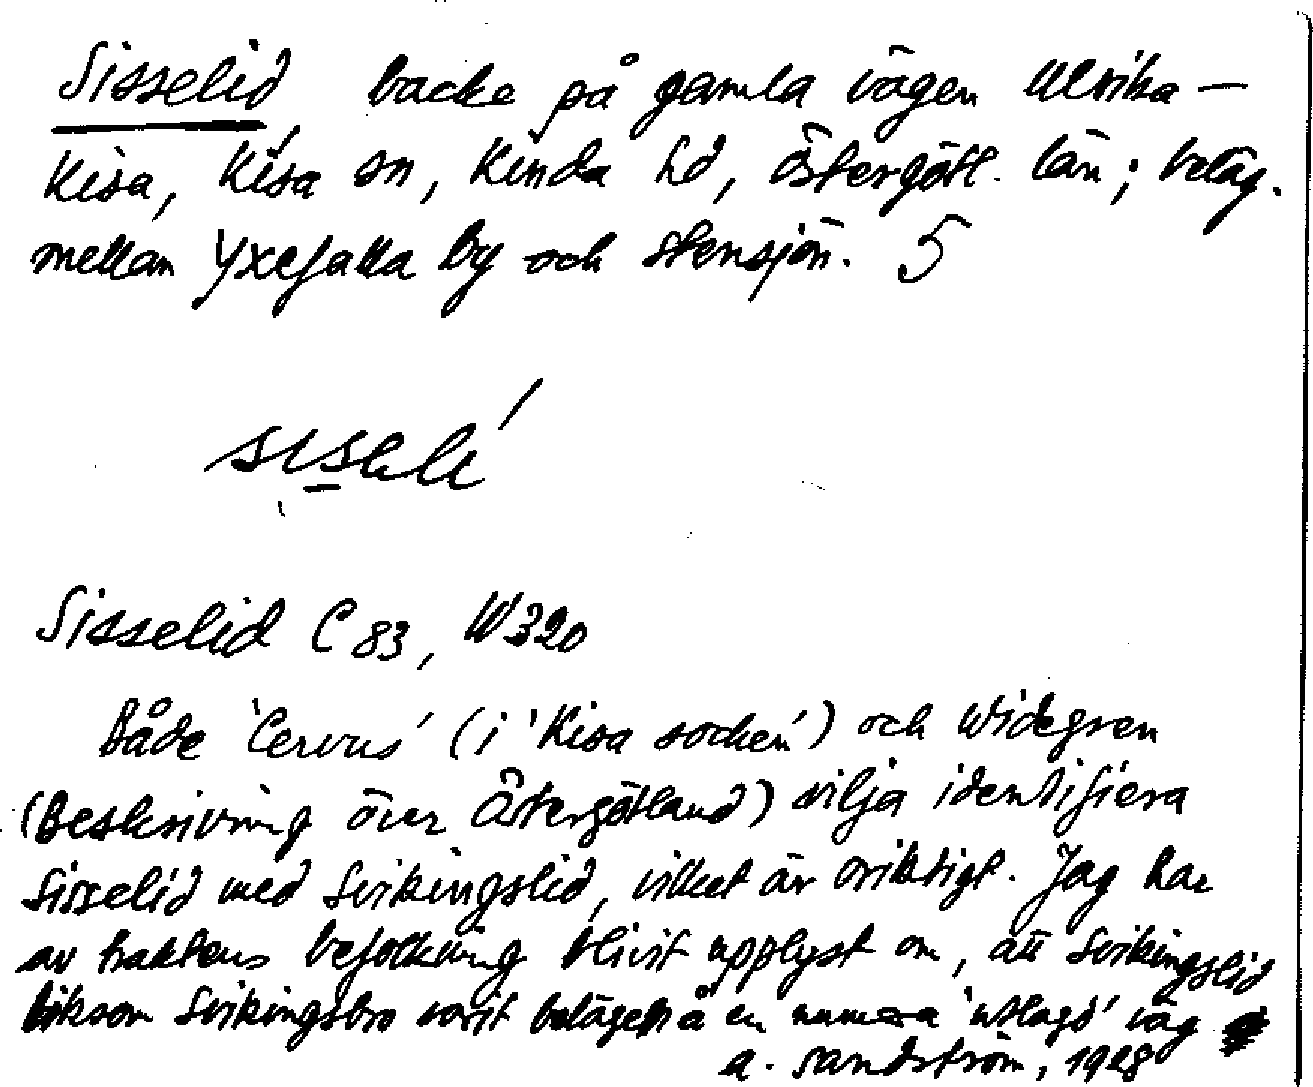 Sisselid, backe på gamla vägen Ulrika –
Kisa, Kisa sn, Kinda hd, Östergötl. län; beläg.
mellan Yxefalla by och Stensjön. 5
Sisselid C 83, W 320
Både 'Cervus' (i 'Kisa socken') och Widegren
(Beskrivning över Östergötland) vilja identifiera
Sisselid med Svikingslid, vilket är oriktigt. Jag har
av traktens befolkning blivit upplyst om, att Svikingslid
liksom Svikingsbro varit belägen å en numera 'utlagd' väg
A. Sandström, 1928